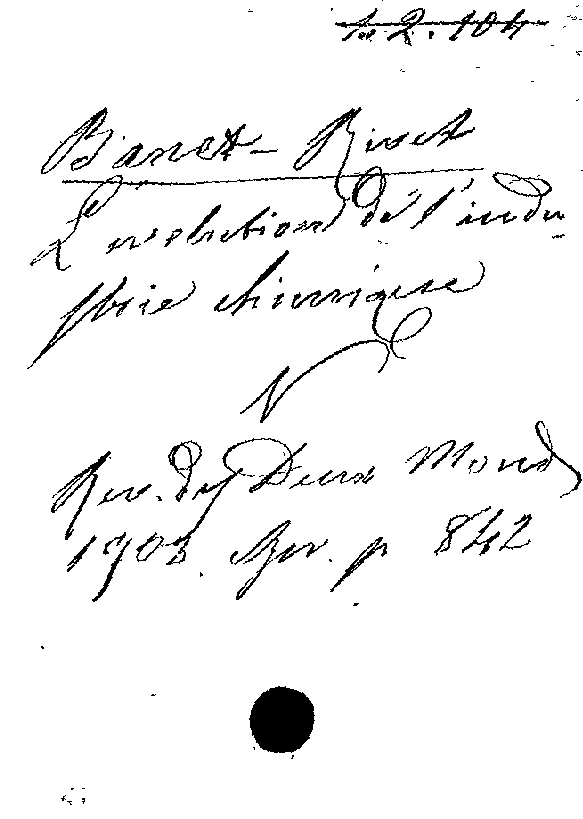 2.104
Banet-Rivet
L'evolution de l'indu-
strie chimique
Rev. des Deux Mond
1903. p 842